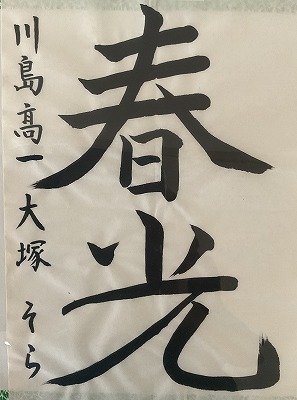 春光
川島高一大塚そら